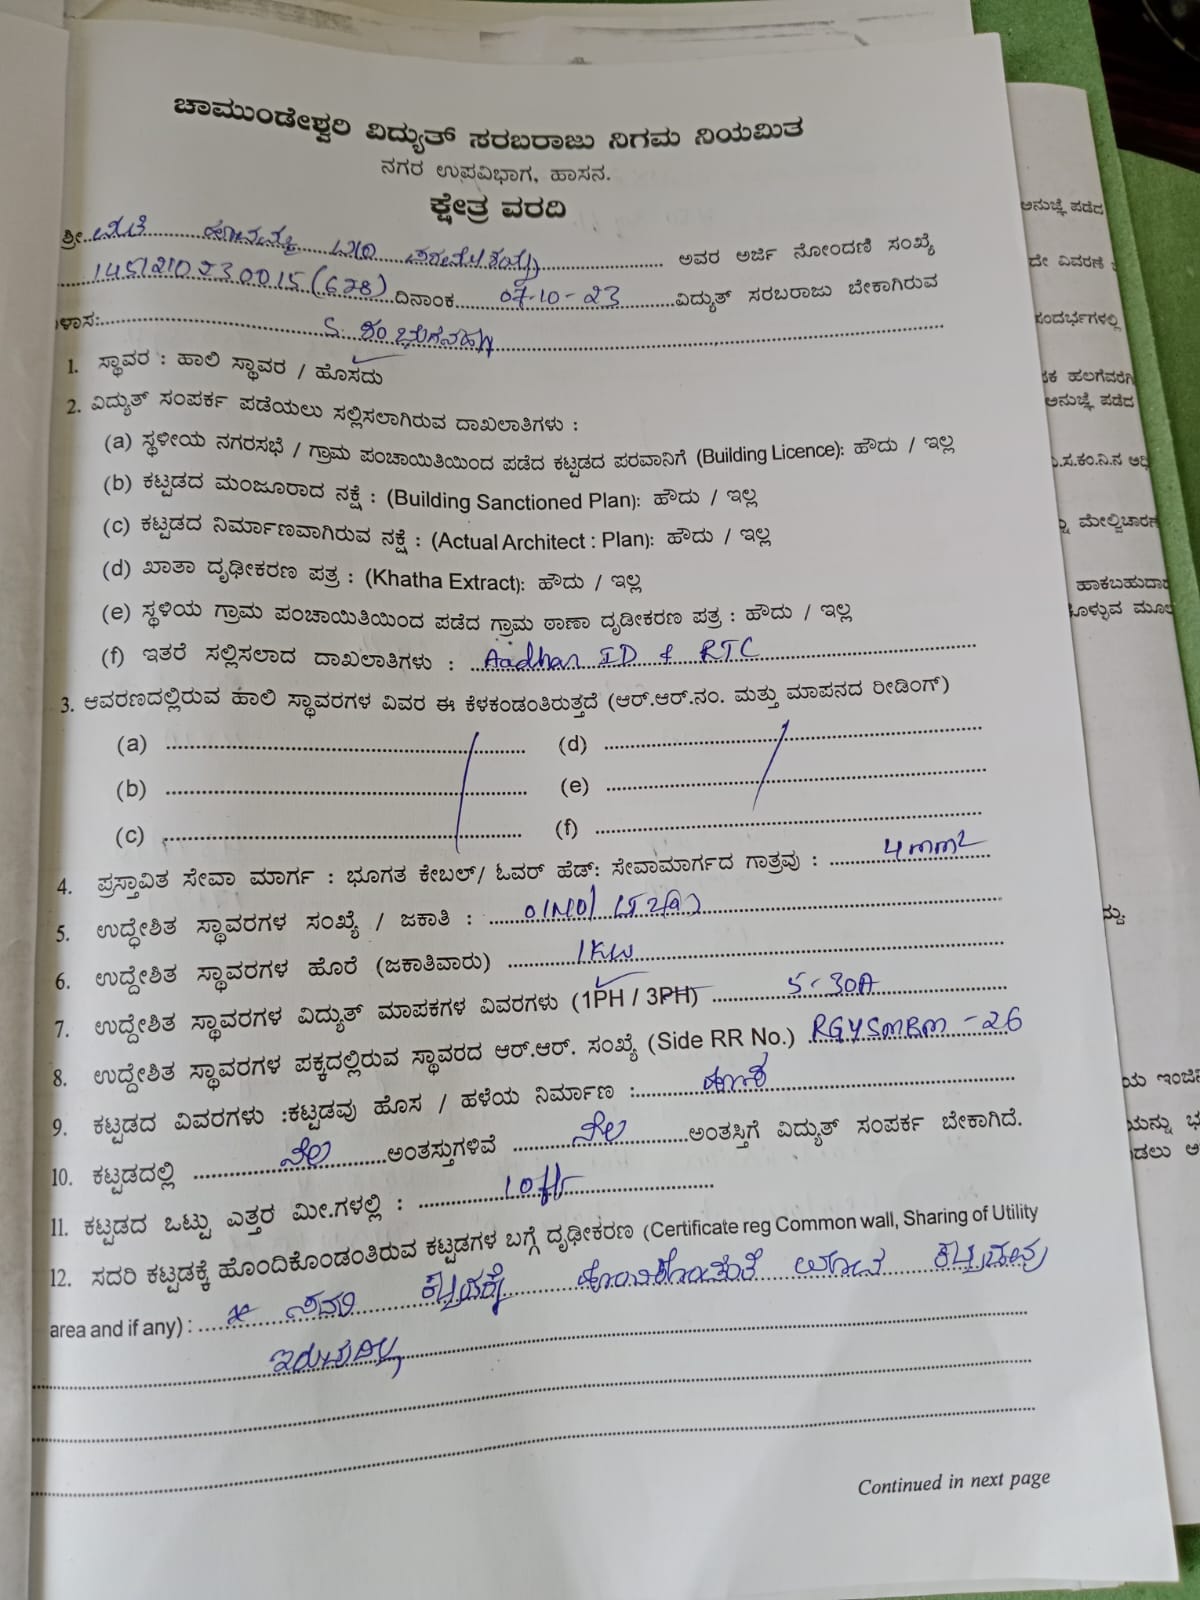 ಚಾಮುಂಡೇಶ್ವರಿ ವಿದ್ಯುತ್ ಸರಬರಾಜು ನಿಗಮ ನಿಯಮಿತ
ನಗರ ಉಪವಿಭಾಗ, ಹಾಸನ.
ಕ್ಷೇತ್ರ ವರದಿ
ಶ್ರೀ ಅವರ ಅರ್ಜಿ ನೋಂದಣಿ ಸಂಖ್ಯೆ
(678) ದಿನಾಂಕ 07-10-23 ವಿದ್ಯುತ್ ಸರಬರಾಜು ಬೇಕಾಗಿರುವ
1. ಸ್ಥಾವರ : ಹಾಲಿ ಸ್ಥಾವರ / ಹೊಸದು
2. ವಿದ್ಯುತ್ ಸಂಪರ್ಕ ಪಡೆಯಲು ಸಲ್ಲಿಸಲಾಗಿರುವ ದಾಖಲಾತಿಗಳು :
(a) ಸ್ಥಳೀಯ ನಗರಸಭೆ / ಗ್ರಾಮ ಪಂಚಾಯಿತಿಯಿಂದ ಪಡೆದ ಕಟ್ಟಡದ ಪರವಾನಿಗೆ (Building Licence): ಹೌದು / ಇಲ್ಲ
(b) ಕಟ್ಟಡದ ಮಂಜೂರಾದ ನಕ್ಷೆ : (Building Sanctioned Plan): ಹೌದು / ಇಲ್ಲ
(c) ಕಟ್ಟಡದ ನಿರ್ಮಾಣವಾಗಿರುವ ನಕ್ಷೆ : (Actual Architect : Plan): ಹೌದು / ಇಲ್ಲ
(d) ಖಾತಾ ದೃಢೀಕರಣ ಪತ್ರ : (Khatha Extract): ಹೌದು / ಇಲ್ಲ
(e) ಸ್ಥಳಿಯ ಗ್ರಾಮ ಪಂಚಾಯಿತಿಯಿಂದ ಪಡೆದ ಗ್ರಾಮ ಠಾಣಾ ದೃಡೀಕರಣ ಪತ್ರ : ಹೌದು / ಇಲ್ಲ
(f) ಇತರೆ ಸಲ್ಲಿಸಲಾದ ದಾಖಲಾತಿಗಳು : Aadhar ID & RTC
3. ಆವರಣದಲ್ಲಿರುವ ಹಾಲಿ ಸ್ಥಾವರಗಳ ವಿವರ ಈ ಕೆಳಕಂಡಂತಿರುತ್ತದೆ (ಆರ್.ಆರ್.ನಂ. ಮತ್ತು ಮಾಪನದ ರೀಡಿಂಗ್)
(a) (d)
(b) (e)
(c) (f)
4. ಪ್ರಸ್ತಾವಿತ ಸೇವಾ ಮಾರ್ಗ : ಭೂಗತ ಕೇಬಲ್/ ಓವರ್ ಹೆಡ್: ಸೇವಾಮಾರ್ಗದ ಗಾತ್ರವು : 4mm2
5. ಉದ್ಧೇಶಿತ ಸ್ಥಾವರಗಳ ಸಂಖ್ಯೆ / ಜಕಾತಿ :
6. ಉದ್ದೇಶಿತ ಸ್ಥಾವರಗಳ ಹೊರೆ (ಜಕಾತಿವಾರು) 1KW
7. ಉದ್ದೇಶಿತ ಸ್ಥಾವರಗಳ ವಿದ್ಯುತ್ ಮಾಪಕಗಳ ವಿವರಗಳು (1PH / 3PH) 5-30A
8. ಉದ್ದೇಶಿತ ಸ್ಥಾವರಗಳ ಪಕ್ಕದಲ್ಲಿರುವ ಸ್ಥಾವರದ ಆರ್.ಆರ್. ಸಂಖ್ಯೆ (Side RR No.) RGYSMBM-26
9. ಕಟ್ಟಡದ ವಿವರಗಳು :ಕಟ್ಟಡವು ಹೊಸ / ಹಳೆಯ ನಿರ್ಮಾಣ :
10. ಕಟ್ಟಡದಲ್ಲಿ ನೆಲ ಅಂತಸ್ತುಗಳಿವೆ ನೆಲ ಅಂತಸ್ತಿಗೆ ವಿದ್ಯುತ್ ಸಂಪರ್ಕ ಬೇಕಾಗಿದೆ.
11. ಕಟ್ಟಡದ ಒಟ್ಟು ಎತ್ತರ ಮೀ.ಗಳಲ್ಲಿ : 10ft
12. ಸದರಿ ಕಟ್ಟಡಕ್ಕೆ ಹೊಂದಿಕೊಂಡಂತಿರುವ ಕಟ್ಟಡಗಳ ಬಗ್ಗೆ ದೃಢೀಕರಣ (Certificate reg Common wall, Sharing of Utility
area and if any) : ಸದರಿ ಕಟ್ಟಡಕ್ಕೆ ಹೊಂದಿಕೊಂಡಂತೆ ಯಾವ ಕಟ್ಟಡವು
ಇರುವುದಿಲ್ಲ
Continued in next page